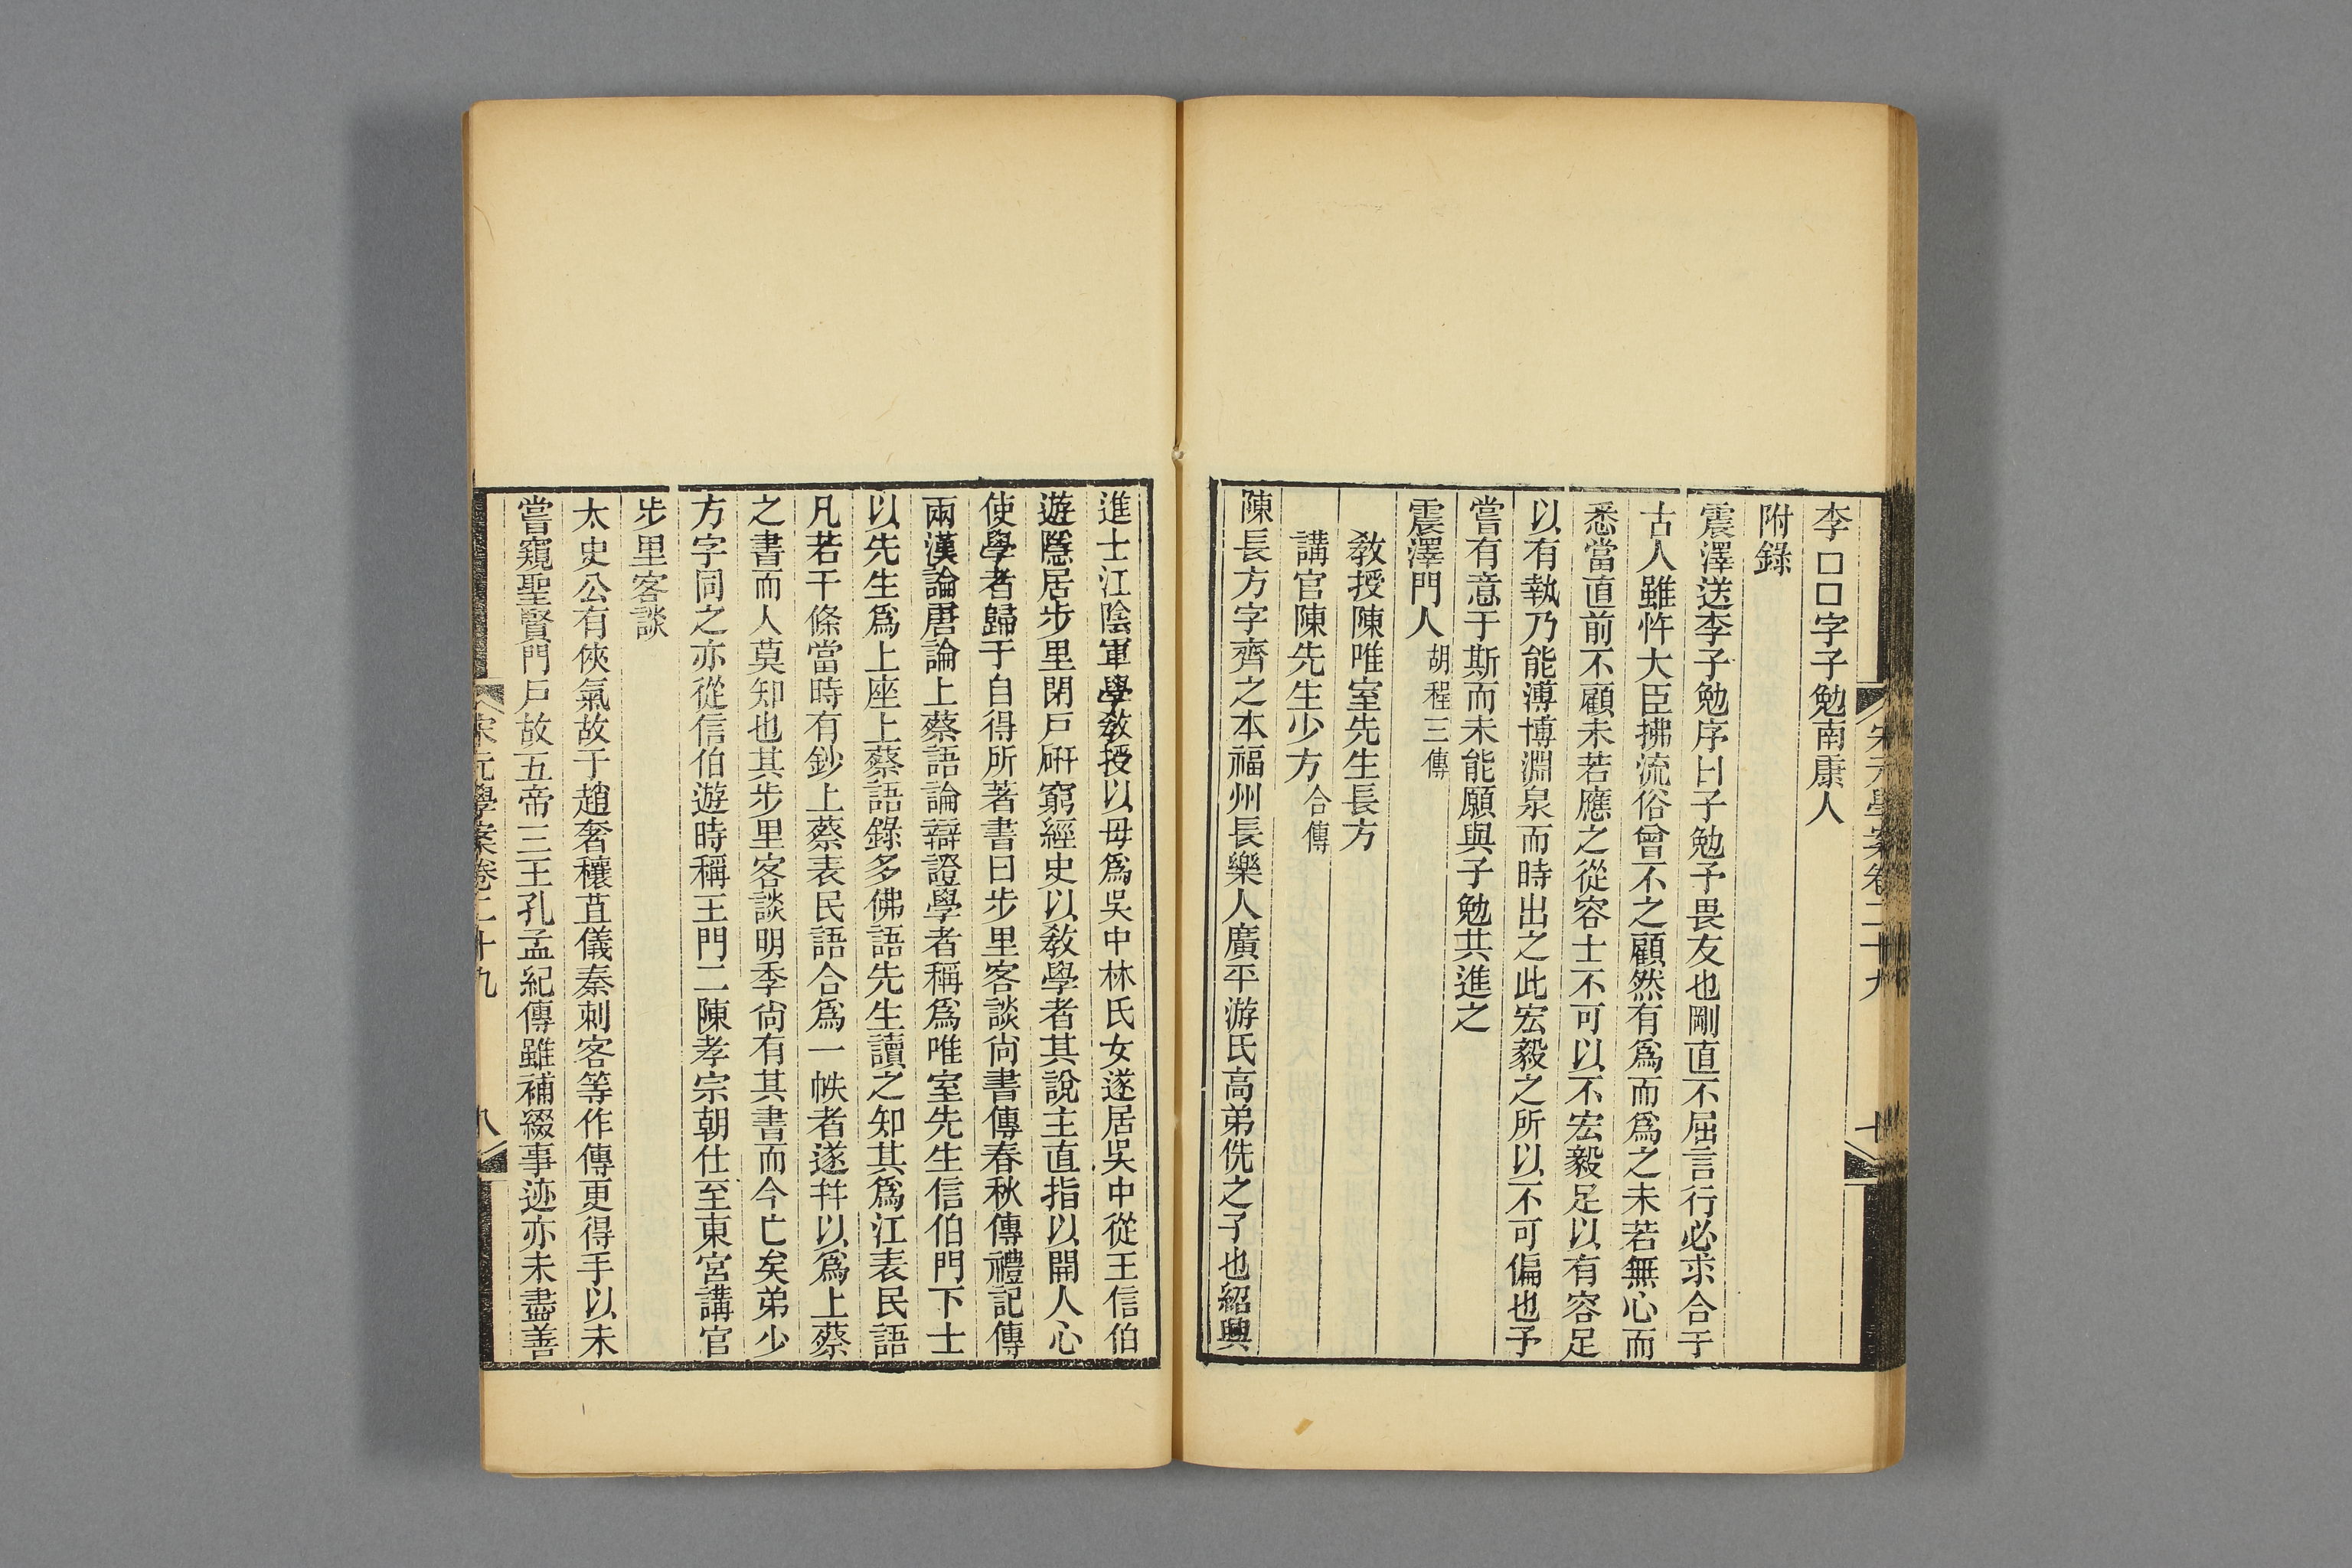 李□□字子勉南康人
附錄
震澤送李子勉序曰子勉予畏友也剛直不屈言行必求合于
古人雖忤大臣拂流俗曾不之顧然有爲而爲之未若無心而
悉當直前不顧未若應之從容士不可以不宏毅足以有容足
以有執乃能溥博淵泉而時出之此宏毅之所以不可偏也予
嘗有意于斯而未能願與子勉共進之
震澤門人胡程三傳
教授陳唯室先生長方
講官陳先生少方合傳
陳長方字齊之本福州長樂人廣平游氏高弟侁之子也紹興
進士江陰軍學教授以母爲吳中林氏女遂居吳中從王信伯
遊隱居步里閉戸硏窮經史以教學者其說主直指以開人心
使學者歸于自得所著書曰步里客談尙書傳春秋傳禮記傳
兩漢論唐論上蔡語論辯證學者稱爲唯室先生信伯門下士
以先生爲上座上蔡語錄多佛語先生讀之知其爲江表民語
凡若干條當時有鈔上蔡表民語合爲一帙者遂幷以爲上蔡
之書而人莫知也其步里客談明季尙有其書而今亡矣弟少
方字同之亦從信伯遊時稱王門二陳孝宗朝仕至東宮講官
步里客談
太史公有俠氣故于趙奢穰苴儀秦刺客等作傳更得手以未
嘗窺聖賢門戸故五帝三王孔孟紀傳雖補綴事迹亦未盡善
宋元學案卷二十九
八